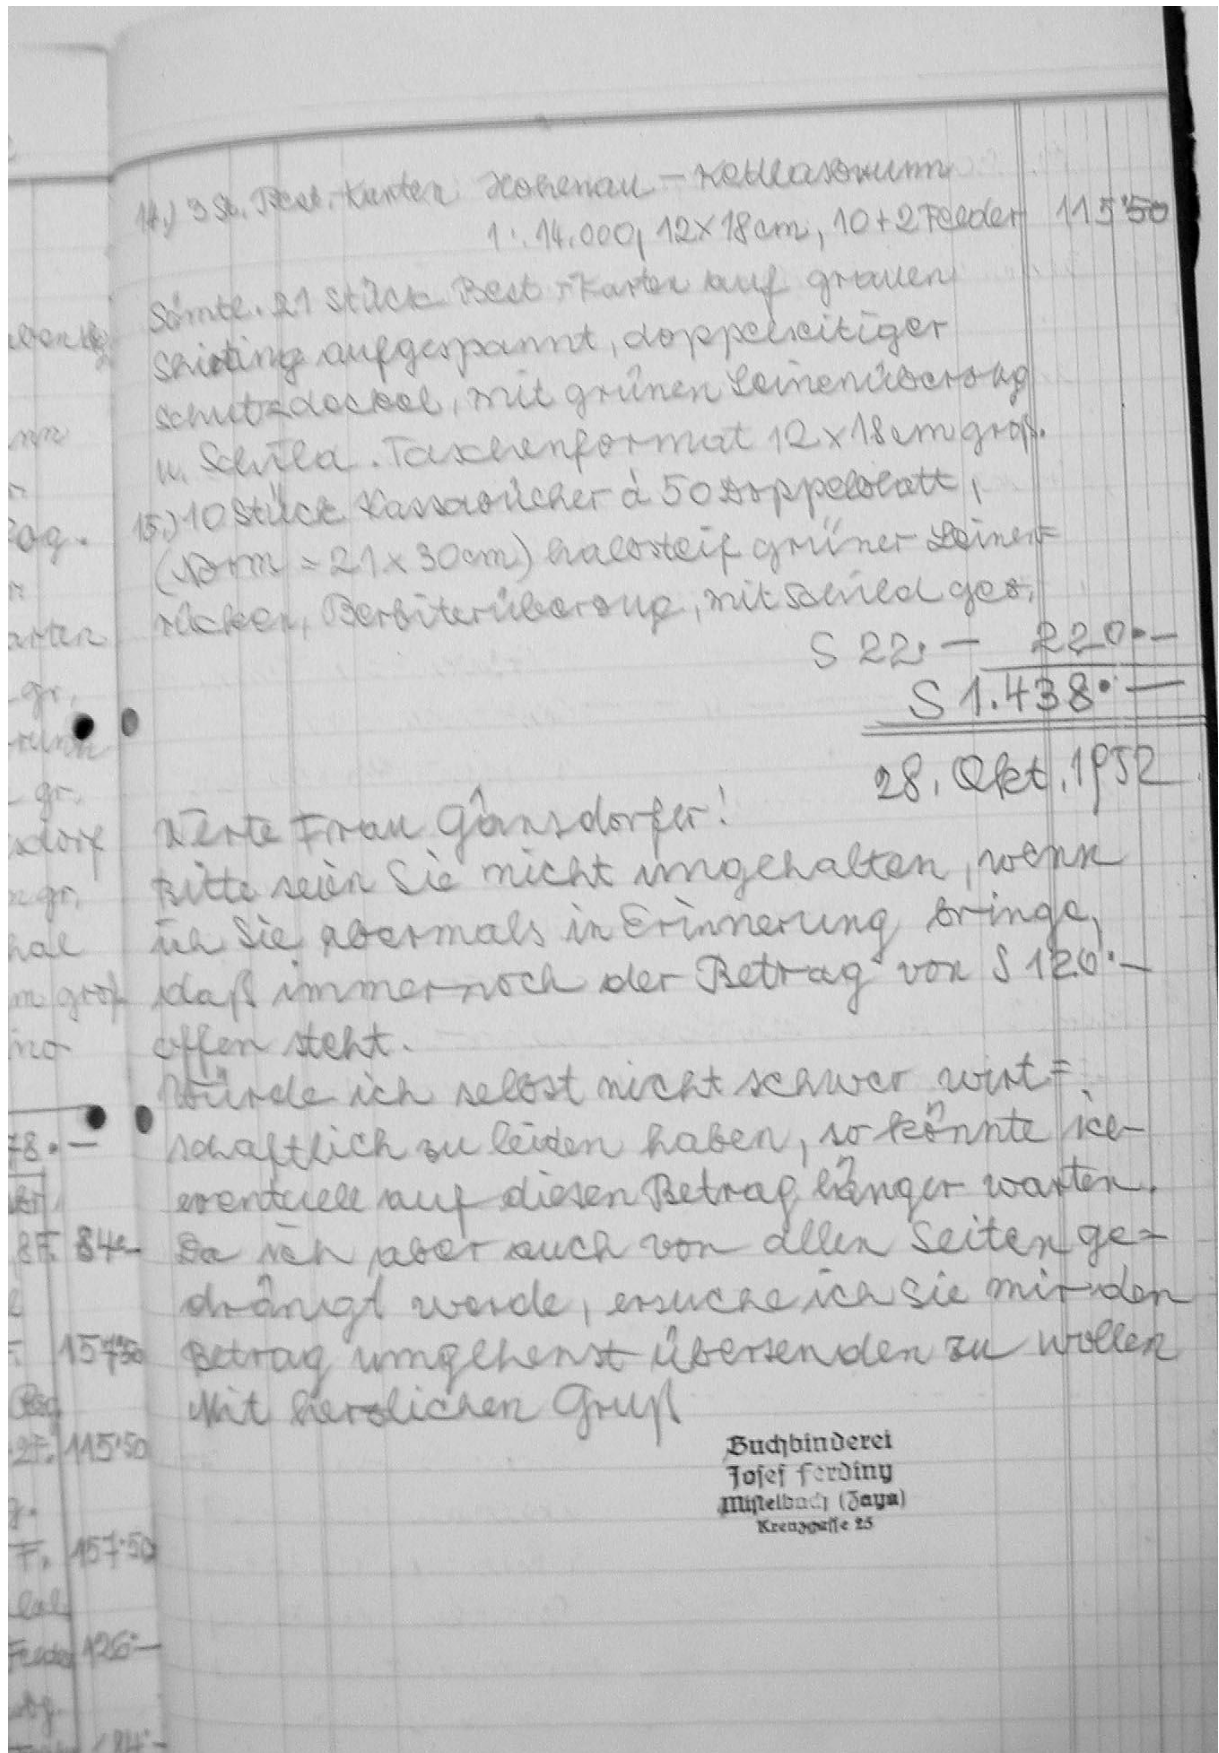 14.) 3 St. Best.-Karten Hohenau – Kottlasbrunn
1:14.000, 12 x 18 cm, 10 + 2 Felder 115'50
Sämtl. 21 Stück Best.-Karten auf grauen
Schirting aufgespannt, doppelseitiger
Schutzdeckel, mit grünen Leinenüberzug
u. Schild. Taschenformat 12 x 18 cm groß.
15.) 10 Stück Kassabücher à 50 Doppelblatt,
(Norm = 21 x 30 cm) halbsteif grüner Leinen=
rücken, mit Schild geb.
S 22.— 220.—
S 1.438.—
28. Okt. 1952
Werte Frau Gänsdorfer!
Bitte seien Sie nicht ungehalten, wenn
ich Sie abermals in Erinnerung bringe,
daß immernoch der Betrag von S 120.—
offen steht.
Würde ich selbst nicht schwer wirt=
schaftlich zu leiden haben, so könnte ich
eventuell auf diesen Betrag länger warten.
Da ich aber auch von allen Seiten ge=
drängt werde, ersuche ich Sie mir den
Betrag umgehenst übersenden zu wollen
Mit herzlichen Gruß
Buchbinderei
Josef Ferding
Mistelbach (Zaya)
Kreuzgasse 25